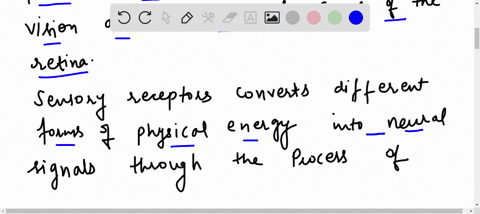 of the
vision
retina.
Sensory receptors converts different
forms of physical energy into neural
signals through the Process of